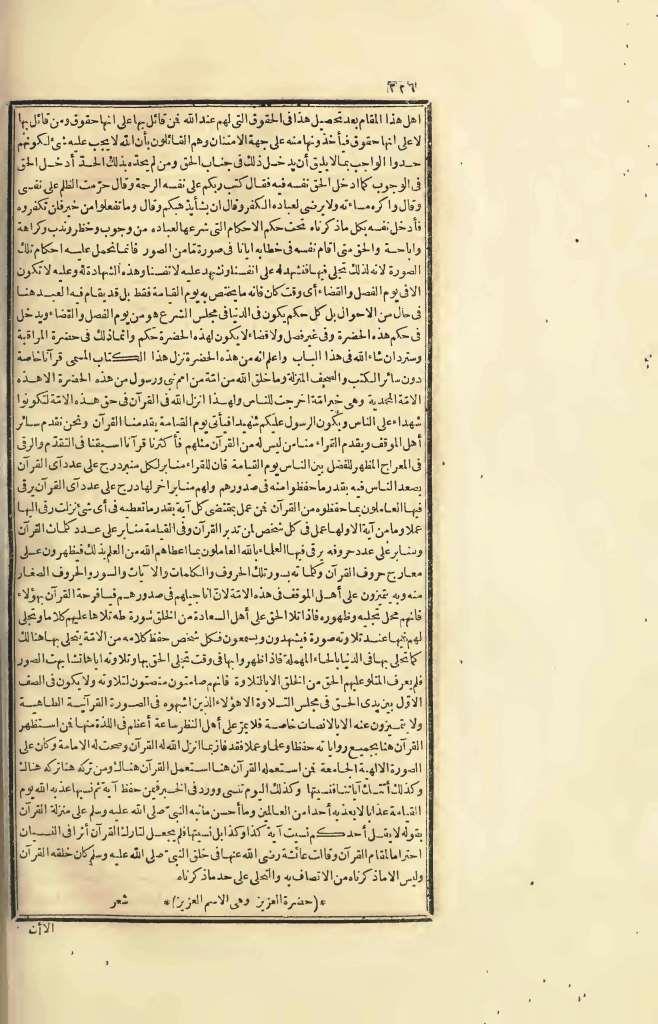 ٣٢٦
اهل هذا المقام بعد تحصيل هذا فى الحقوق التى لهم عند الله فمن قائل بها على انها حقوق ومن قائل بها
لا على انها حقوق فيأخذونها منه على جهة الامتنان وهم القائلون بأن الله لا يجب عليه شئ لكونهم
حدوا الواجب بما لا يليق أن يدخل ذلك فى جناب الحق ومن لم يحده بذلك الحد أدخل الحق
فى الوجوب كما ادخل الحق نفسه فيه فقال كتب ربكم على نفسه الرحمة وقال حرّمت الظلم على نفسى
وقال واكره مساءته ولا يرضى لعباده الكفر وقال ان يشأ يذهبكم وقال وما تفعلوا من خير فلن تكفروه
فأدخل نفسه بكل ما ذكرناه تحت حكم الاحكام التى شرعها لعباده من وجوب وحظر وندب وكراهة
واباحة والحق متى اقام نفسه فى خطابه ايانا فى صورة تما من الصور فانما نحمل عليه احكام تلك
الصورة لانه لذلك تجلى فيها فنشهد له على انفسنا ونشهد عليه لانفسنا وهذه الشهادة له وعليه لا تكون
الا فى يوم الفصل والقضاء أى وقت كان فانه ما يختص به يوم القيامة فقط بل قد يقام فيه العبد هنا
فى حال من الاحوال بل كل حكم يكون فى الدنيا فى مجلس الشرع هو من يوم الفصل والقضاء ويدخل
فى حكم هذه الحضرة وفى غير فصل ولا قضاء لا يكون لهذه الحضرة حكم وانما ذلك فى حضرة المراقبة
وسترد ان شاء الله فى هذا الباب واعلم انه من هذه الحضرة نزل هذا الكتاب المسمى قرآنا خاصة
دون سائر الكتب والصحف المنزلة وما خلق الله من امّة من امم نبى ورسول من هذه الحضرة الا هذه
الامّة المحمدية وهى خير امّة اخرجت للناس ولهذا انزل الله فى القرآن فى حق هذه الامّة لتكونوا
شهداء على الناس ويكون الرسول عليكم شهيدا فيأتى يوم القيامة يقدمنا القرآن ونحن نقدم سائر
أهل الموقف ويقدم القراء منا من ليس له من القرآن مثلهم فأكثرنا قرآنا اسبقنا فى التقدّم والرقى
فى المعراج المظهر للفضل بين الناس يوم القيامة فان للقراء منابر لكل منبر درج على عدد آى القرآن
يصعد الناس فيه بقدر ما حفظوا منه فى صدورهم ولهم منابر اخر لها درج على عدد آى القرآن يرقى
فيها العاملون بما حفظوه من القرآن فمن عمل بمقتضى كل آية بقدر ما تعطيه فى أى شئ نزلت رقى اليها
عملا وما من آية الا ولها عمل فى كل شخص لمن تدبر القرآن وفى القيامة منابر على عدد كلمات القرآن
ومنابر على عدد حروفه يرقى فيها العلماء بالله العاملون بما اعطاهم الله من العلم بذلك فيظهرون على
معارج حروف القرآن وكلماته بسور تلك الحروف والكلمات والآيات والسور والحروف الصغار
منه وبه يتميزون على أهل الموقف فى هذه الامّة لانّ اناجيلهم فى صدورهم فيا فرحة القرآن بهؤلاء
فانهم محل تجليه وظهوره فاذا تلا الحق على أهل السعادة من الخلق سورة طه تلاها عليهم كلاما وتجلى
لهم فيها عند تلاوته صورة فيشهدون ويسمعون فكل شخص حفظ كلامه من الامّة يتحلى بها هنالك
كما تحلى بها فى الدنيا بالحاء المهملة فاذا ظهروا بها فى وقت تجلى الحق بها وتلاوته اياها تشابهت الصور
فلم يعرف المتلو عليهم الحق من الخلق الا بالتلاوة فانهم صامتون منصتون لتلاوته ولا يكون فى الصف
الاوّل بين يدى الحق فى مجلس التلاوة الا هؤلاء الذين اشبهوه فى الصورة القرآنية الطاهية
ولا يتميزون عنه الا بالانصات خاصة فلا يمرّ على أهل النظر ساعة أعظم فى اللذة منها فمن استظهر
القرآن هنا بجميع رواياته حفظا وعلما وعملا فقد فاز بما انزل الله له القرآن وصحت له الامامة وكان على
الصورة الالهية الجامعة فمن استعمله القرآن هنا استعمل القرآن هناك ومن تركه هنا تركه هناك
وكذلك أتتك آياتنا فنسيتها وكذلك اليوم تنسى وورد فى الخبر فيمن حفظ آية ثم نسيها عذبه الله يوم
القيامة عذابا لا يعذبه أحدا من العالمين وما أحسن ما نبه النبىّ صلى الله عليه وسلم على منزلة القرآن
بقوله لا يقل أحدكم نسيت آية كذا وكذا بل نسيتها فلم يجعل لتارك القرآن أثرا فى النسيان
احتراما لمقام القرآن وقالت عائشة رضى الله عنها فى خلق النبىّ صلى الله عليه وسلم كان خلقه القرآن
وليس الا ما ذكرناه من الاتصاف به والتحلى على حد ما ذكرناه
*(حضرة العزيز وهى الاسم العزيز)* شعر
الا أن